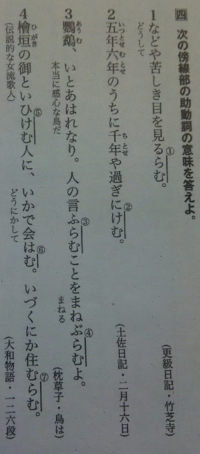 四 次の傍線部の助動詞の意味を答えよ。
1 などや苦しき目を見るらむ。
①
どうして
(更級日記・竹芝寺)
2 五年六年のうちに千年や過ぎにけむ。
いつとせむとせ
ちとせ
②
(土佐日記・二月十六日)
3 鸚鵡、いとあはれなり。人の言ふらむことをまねぶらむよ。
あうむ
③
④
本当に感心な鳥だ
まねる
(枕草子・鳥は)
4 檜垣の御といひけむ人に、いかで会はむ。いづくにか住むらむ。
ひがき
⑤
⑥
⑦
(伝説的な女流歌人)
どうにかして
(大和物語・一二六段)